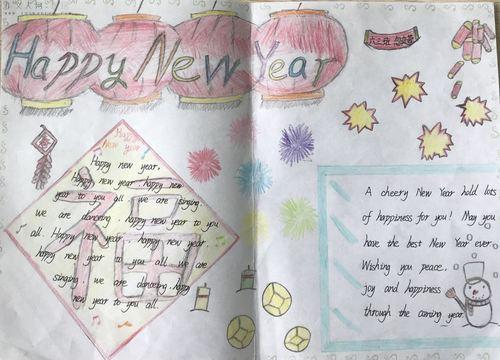 Happy New Year
六三班
Happy
New Year
Happy new year,
Happy new year happy new
year to you all we are singing
we are danceing happy new year to you
all. Happy new year happy new year,
happy new year to you all we are
singing. we are danceing happy
new year to you all.
福
A cheery New Year hold lots
of happiness for you! May you
have the best New Year ever
Wishing you peace,
joy and happiness
through the coming year